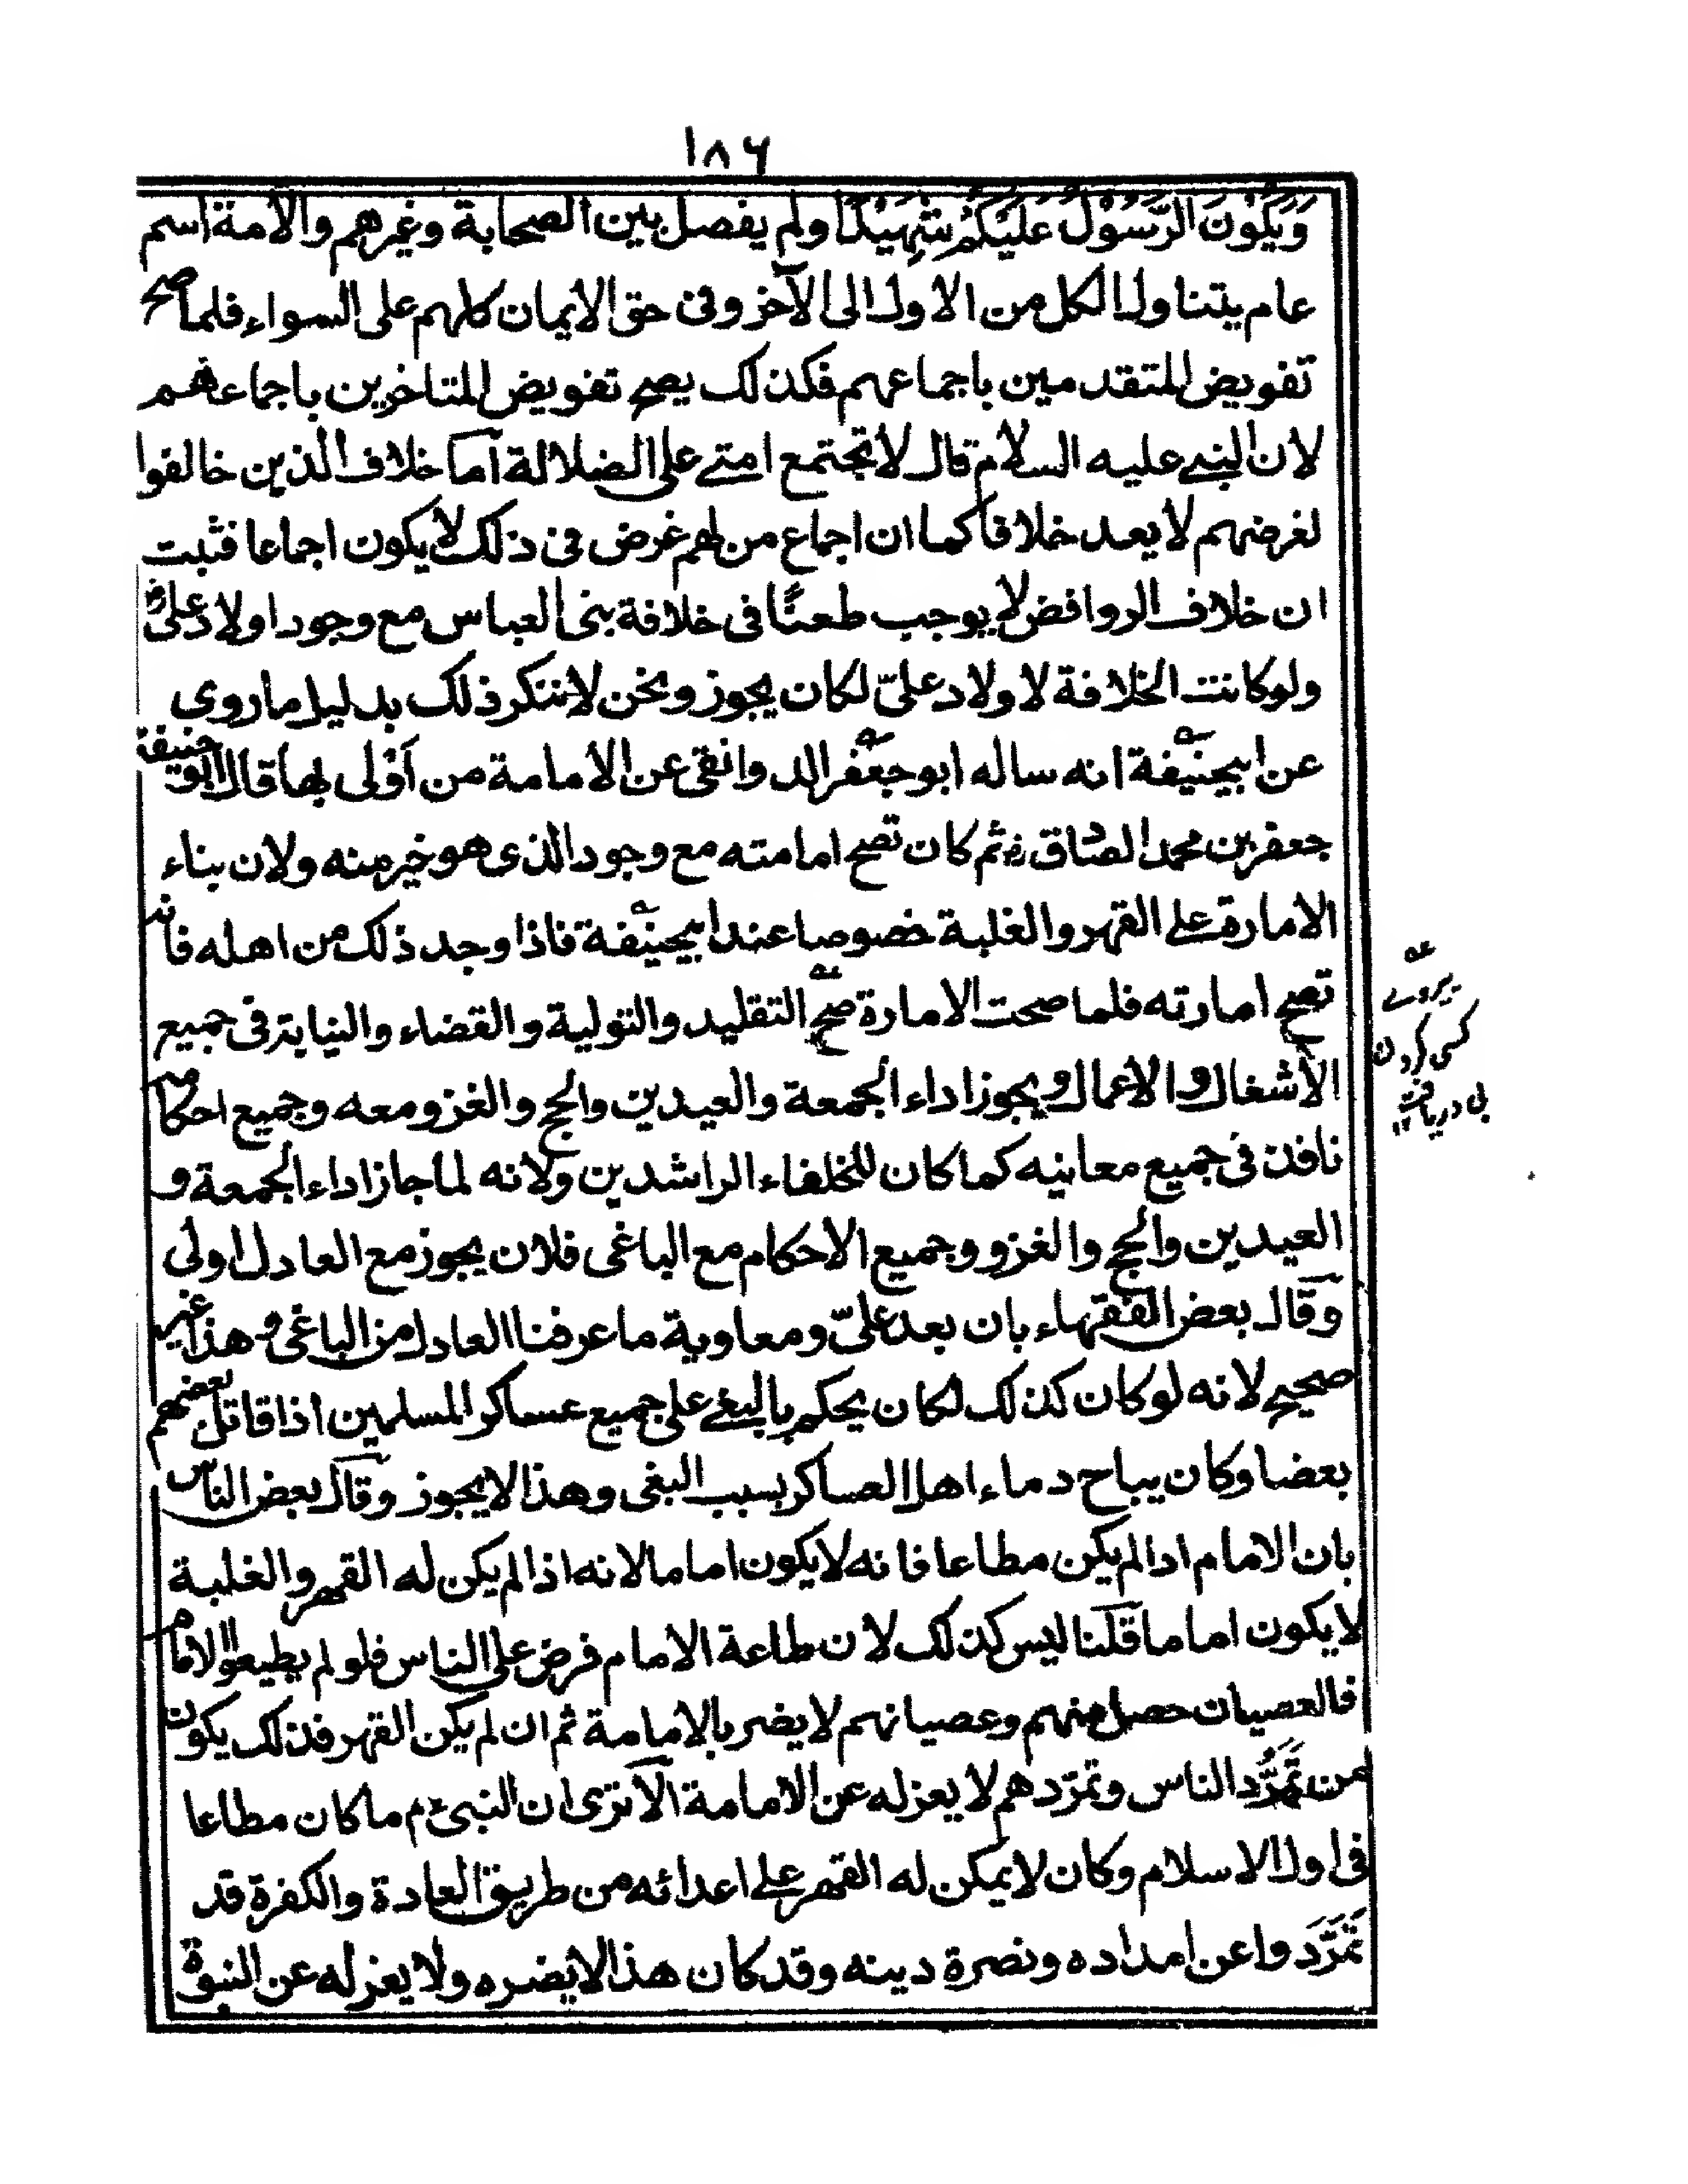 ١٨٦
وَيَكُوْنَ الرَّسُوْلُ عَلَيْكُمْ شَهِيْدًا ولم يفصل بين الصحابة وغيرهم والامة اسم
عام يتناول الكل من الاول الى الآخر وفى حق الايمان كلهم على السواء فلما صح
تفويض المتقدمين باجماعهم فكذلك يصح تفويض المتاخرين باجماعهم
لان النبى عليه السلام قال لا تجتمع امتى على الضلالة اما خلاف الذين خالفوا
لغرضهم لا يعد خلافا كما ان اجماع من لهم غرض فى ذلك لا يكون اجماعا فثبت
ان خلاف الروافض لا يوجب طعنًا فى خلافة بنى العباس مع وجود اولاد علىؓ
ولو كانت الخلافة لاولاد علىّ لكان يجوز ونحن لا ننكر ذلك بدليل ما روى
عن ابيحنيفة انه ساله ابو جعفر الدوانقى عن الامامة من اَوْلى بها قال ابو حنيفة
جعفر بن محمد الصادق رض ثم كان تصح امامته مع وجود الذى هو خير منه ولان بناء
الامارة على القهر والغلبة خصوصا عند ابيحنيفة فاذا وجد ذلك من اهله فانه
تصح امارته فلما صحت الامارة صحّ التقليد والتولية والقضاء والنيابة فى جميع
الأشغال والاعمال ويجوز اداء الجمعة والعيدين والحج والغزو معه وجميع احكامه
نافذ فى جميع معانيه كما كان للخلفاء الراشدين ولانه لما جاز اداء الجمعة و
العيدين والحج والغزو وجميع الاحكام مع الباغى فلان يجوز مع العادل اولى
وقال بعض الفقهاء بان بعد علىّ ومعاوية ما عرفنا العادل من الباغى وهذا غير
صحيح لانه لو كان كذلك لكان يحكم بالبغى على جميع عساكر المسلمين اذا قاتل بعضهم
بعضا وكان يباح دماء اهل العساكر بسبب البغى وهذا لا يجوز وقال بعض الناس
بان الامام اذا لم يكن مطاعا فانه لا يكون اماما لانه اذا لم يكن له القهر والغلبة
لا يكون اماما قلنا ليس كذلك لان طاعة الامام فرض على الناس فلو لم يطيعوا الامام
فالعصيان حصل منهم وعصيانهم لا يضر بالامامة ثم ان لم يكن القهر فذلك يكون
من تَمَرُّد الناس وتمرّدهم لا يعزله عن الامامة الا ترى ان النبى ءم ما كان مطاعا
فى اول الاسلام وكان لا يمكن له القهر على اعدائه من طريق العادة والكفرة قد
تَمَرَّدَوا عن امداده ونصرة دينه وقد كان هذا لا يضره ولا يعزله عن النبوة
عه
پیروے
کسی کردن
بی دریافت ۱۲